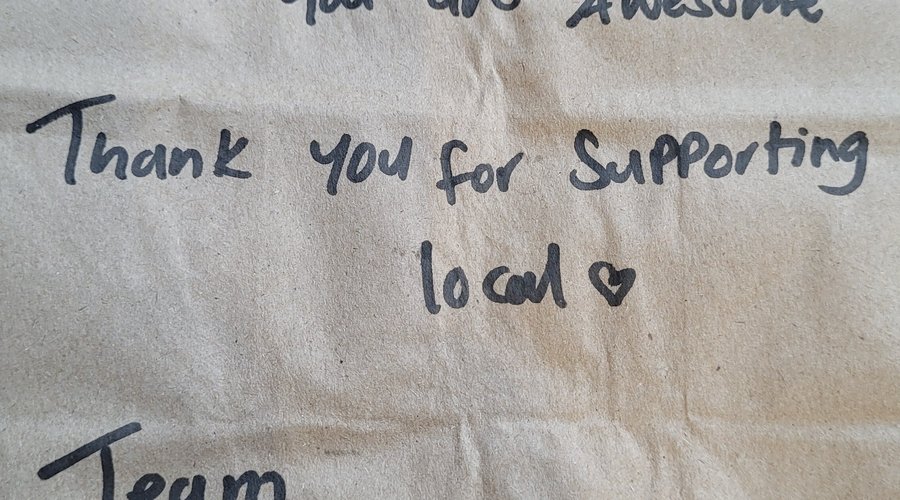 You are Awesome
Thank you for Supporting
local ♡
Team